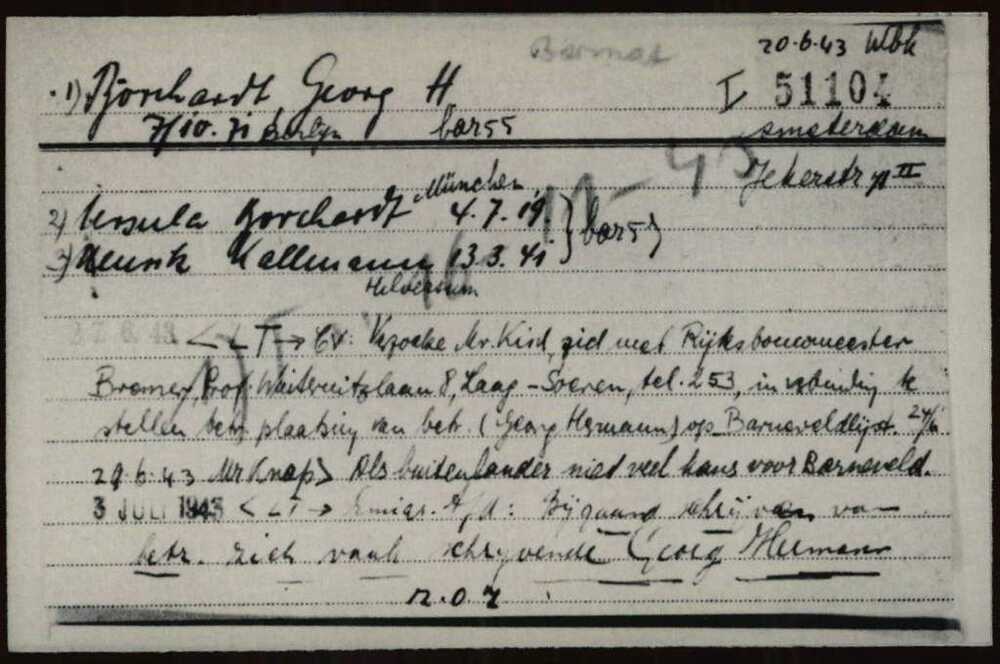 20.6.43 Wbk
1) Borchardt, Georg H I 51104
7/10.71 Berlijn bar 55 Amsterdam
Jekerstr II
München
2) Ursula Borchardt 4.7.19.
3) Kallmann 13.3.41 } bar 57
Hilversum
<- LT -> CV: Verzoeke Mr. Kisch, zich met Rijksbouwmeester
Bremer, Prof. 8, Laag-Soeren, tel. 253, in verbinding te
stellen betr. plaatsing van betr. (Georg Hermann) op Barneveldlijst. 24/6
29.6.43 Mr Knap> Als buitenlander niet veel kans voor Barneveld.
3 JULI 1943 < LT -> Emigr. Afd: Bijgaand schrijven van
betr. zich noemende Georg Hermann